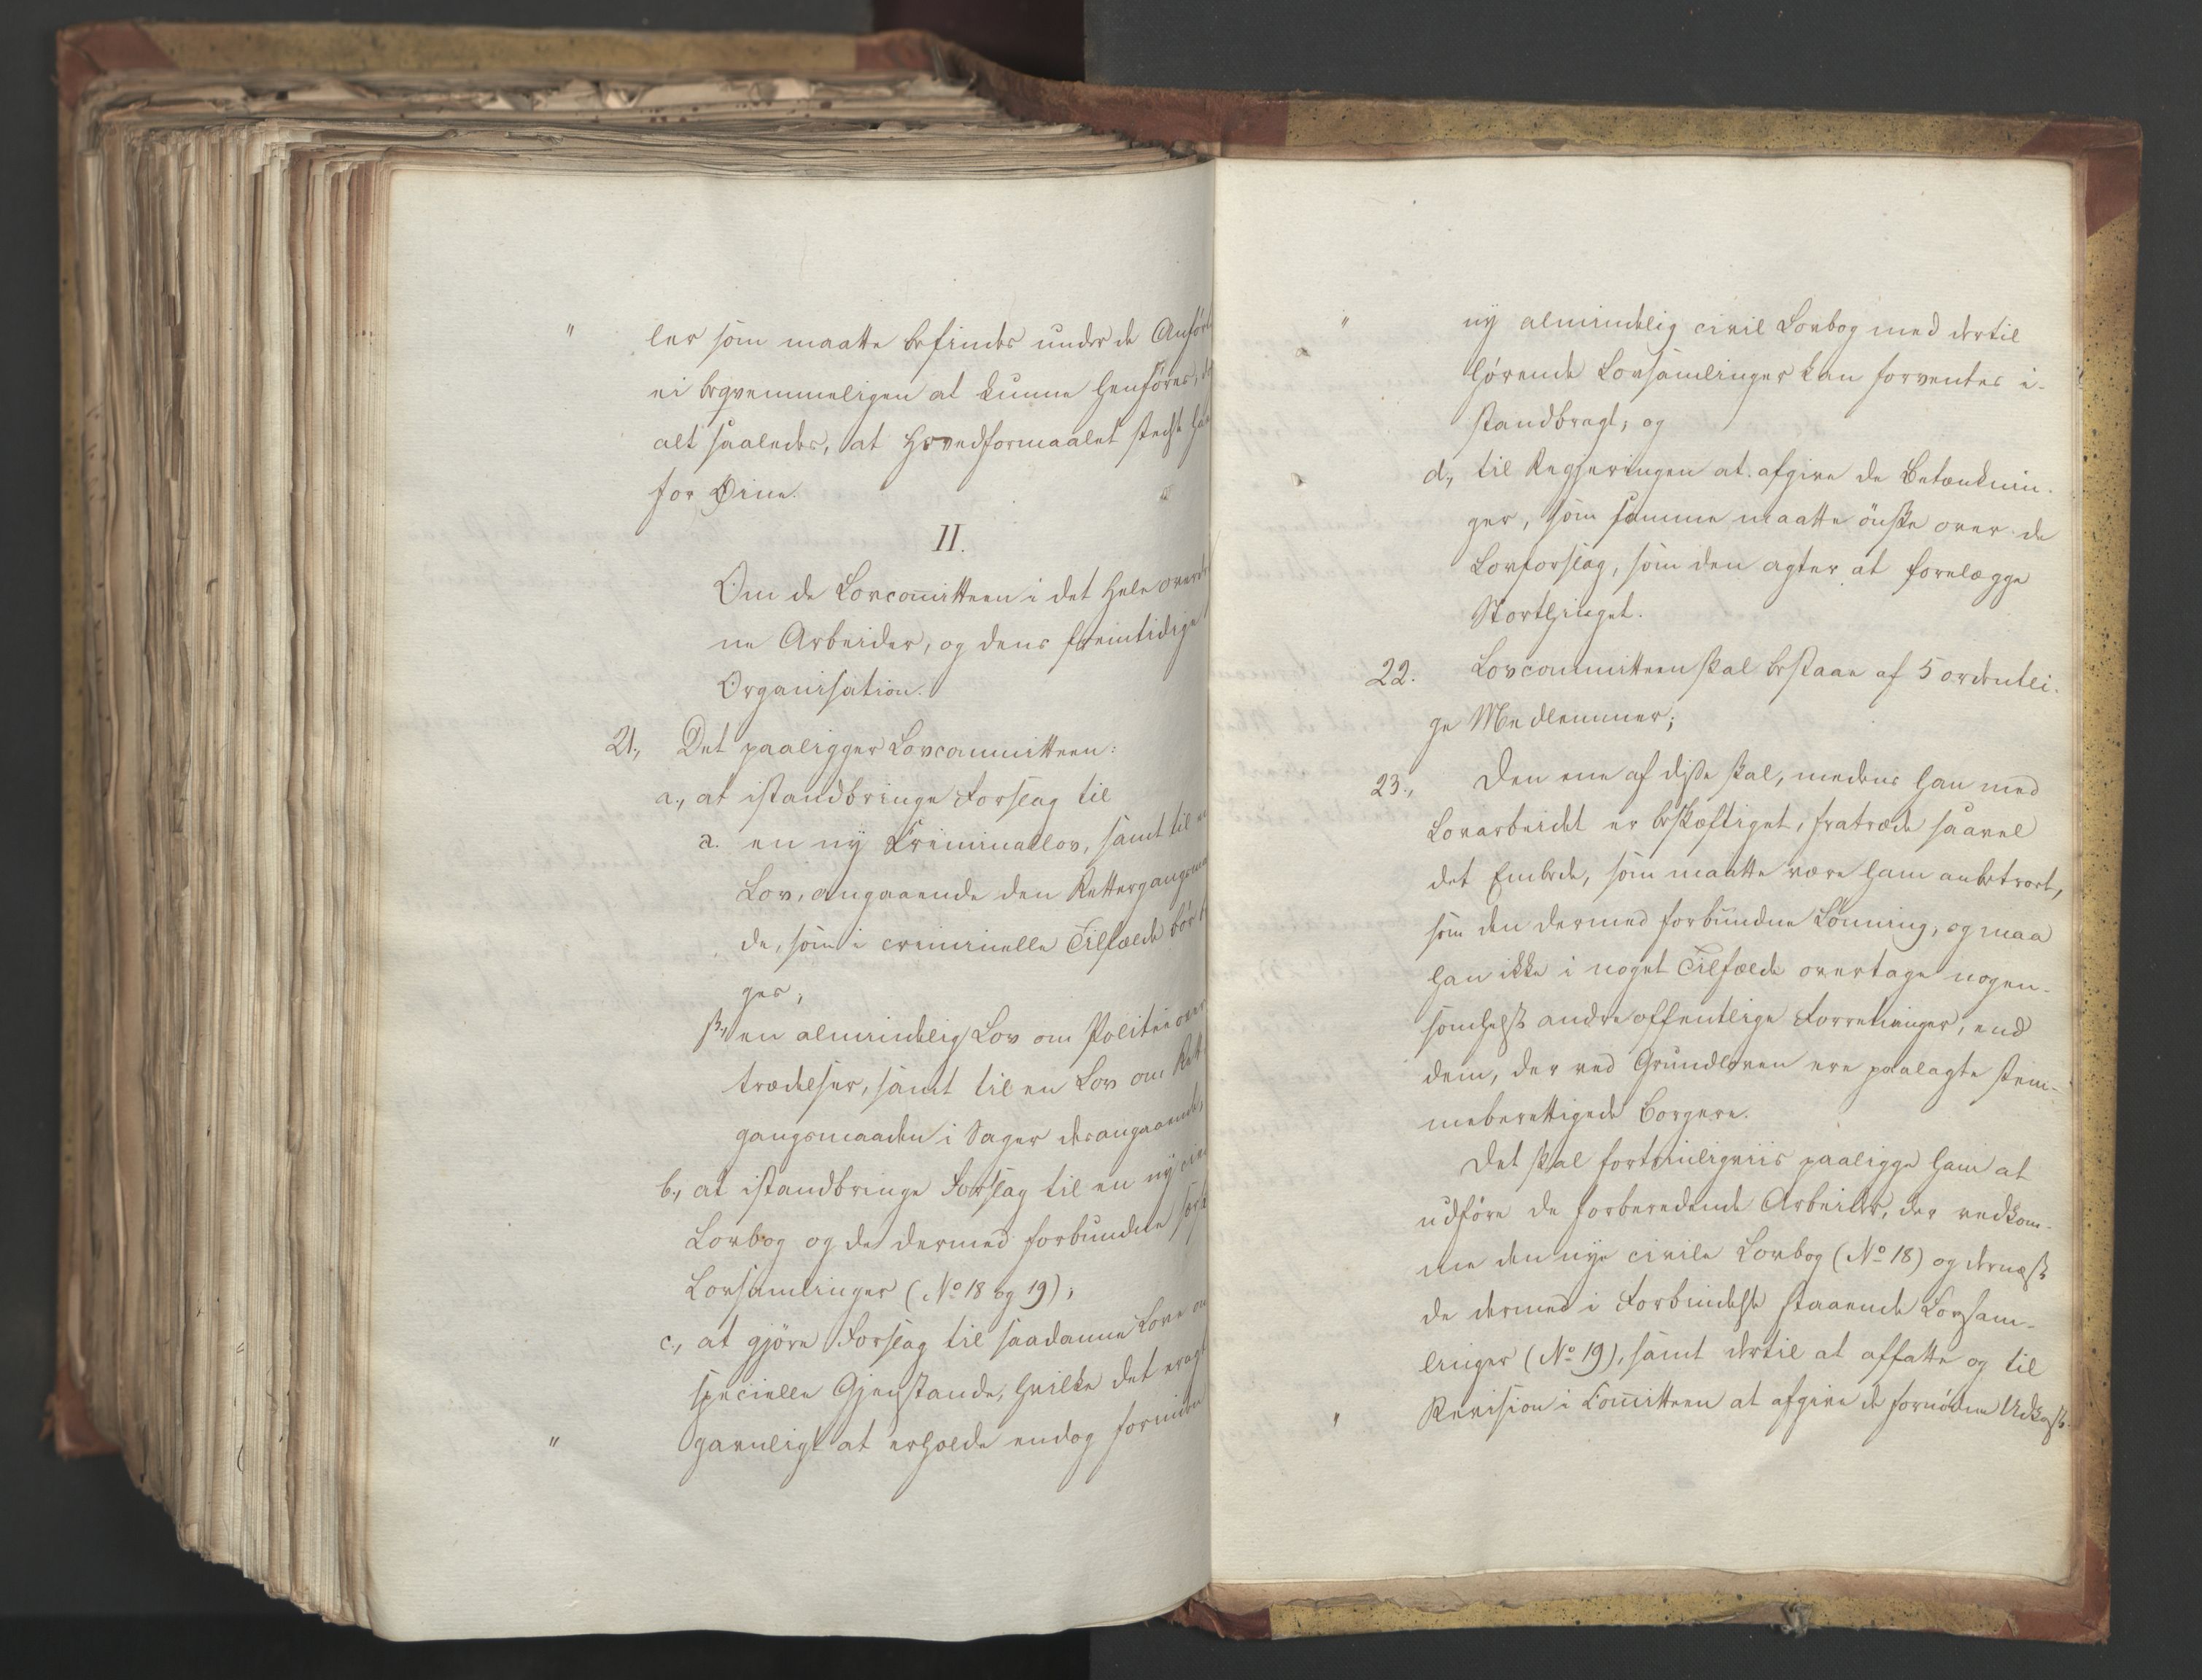 "
ler som maatte befindes under de Anför
ei beqvemmeligen at kunne henföres,
alt saaledes, at Hovedformaalet stedse
for Øine.
II.
Om de Lovcomitteen i det Hele overdr
ne Arbeider, og dens fremtidige
Organisation.
21., Det paaligger Lovcommitteen:
a., at istandbringe Forslag til
α. en ny Criminallov, samt til
Lov, angaaende den Rettergangsm
de, som i criminelle Tilfælde bör
ges;
β., en almindelig Lov om Politieover
trædelser, samt til en Lov om Rett
gangsmaaden i Sager desangaaende;
b., at istandbringe Forslag til en ny civ
Lovbog og de dermed forbundne
Lovsamlinger (No 18 og 19);
c., at gjöre Forslag til saadanne Love om
specielle Gjenstande, hvilke det eragt
" gavnligt at erholde endog forinden
" ny almindelig civil Lovbog med dertil
hørende Lovsamlinger kan forventes i-
standbragt; og
d., til Regjeringen at afgive de Betænknin-
ger, som samme maatte önske over de
Lovforslag, som den agter at forelægge
Storthinget.
22. Lovcommitteen skal bestaae af 5 ordentli-
ge Medlemmer;
23., Den ene af disse skal, medens han med
Lovarbeidet er beskæftiget, fratræde saavel
det Embede, som maatte være ham anbetroet,
som den dermed forbundne Lönning, og maa
han ikke i noget Tilfælde overtage nogen-
somhelst andre offentlige Forretninger, end
dem, der ved Grundloven ere paalagte stem-
meberettigede Borgere.
Det skal fortrinligviis paaligge ham at
udföre de forberedende Arbeider, der vedkom-
me den nye civile Lovbog (No 18) og dernæst
de dermed i Forbindelse staaende Lovsam-
linger (No 19), samt dertil at affatte og til
" Revision i Comitteen at afgive de fornödne Udkast